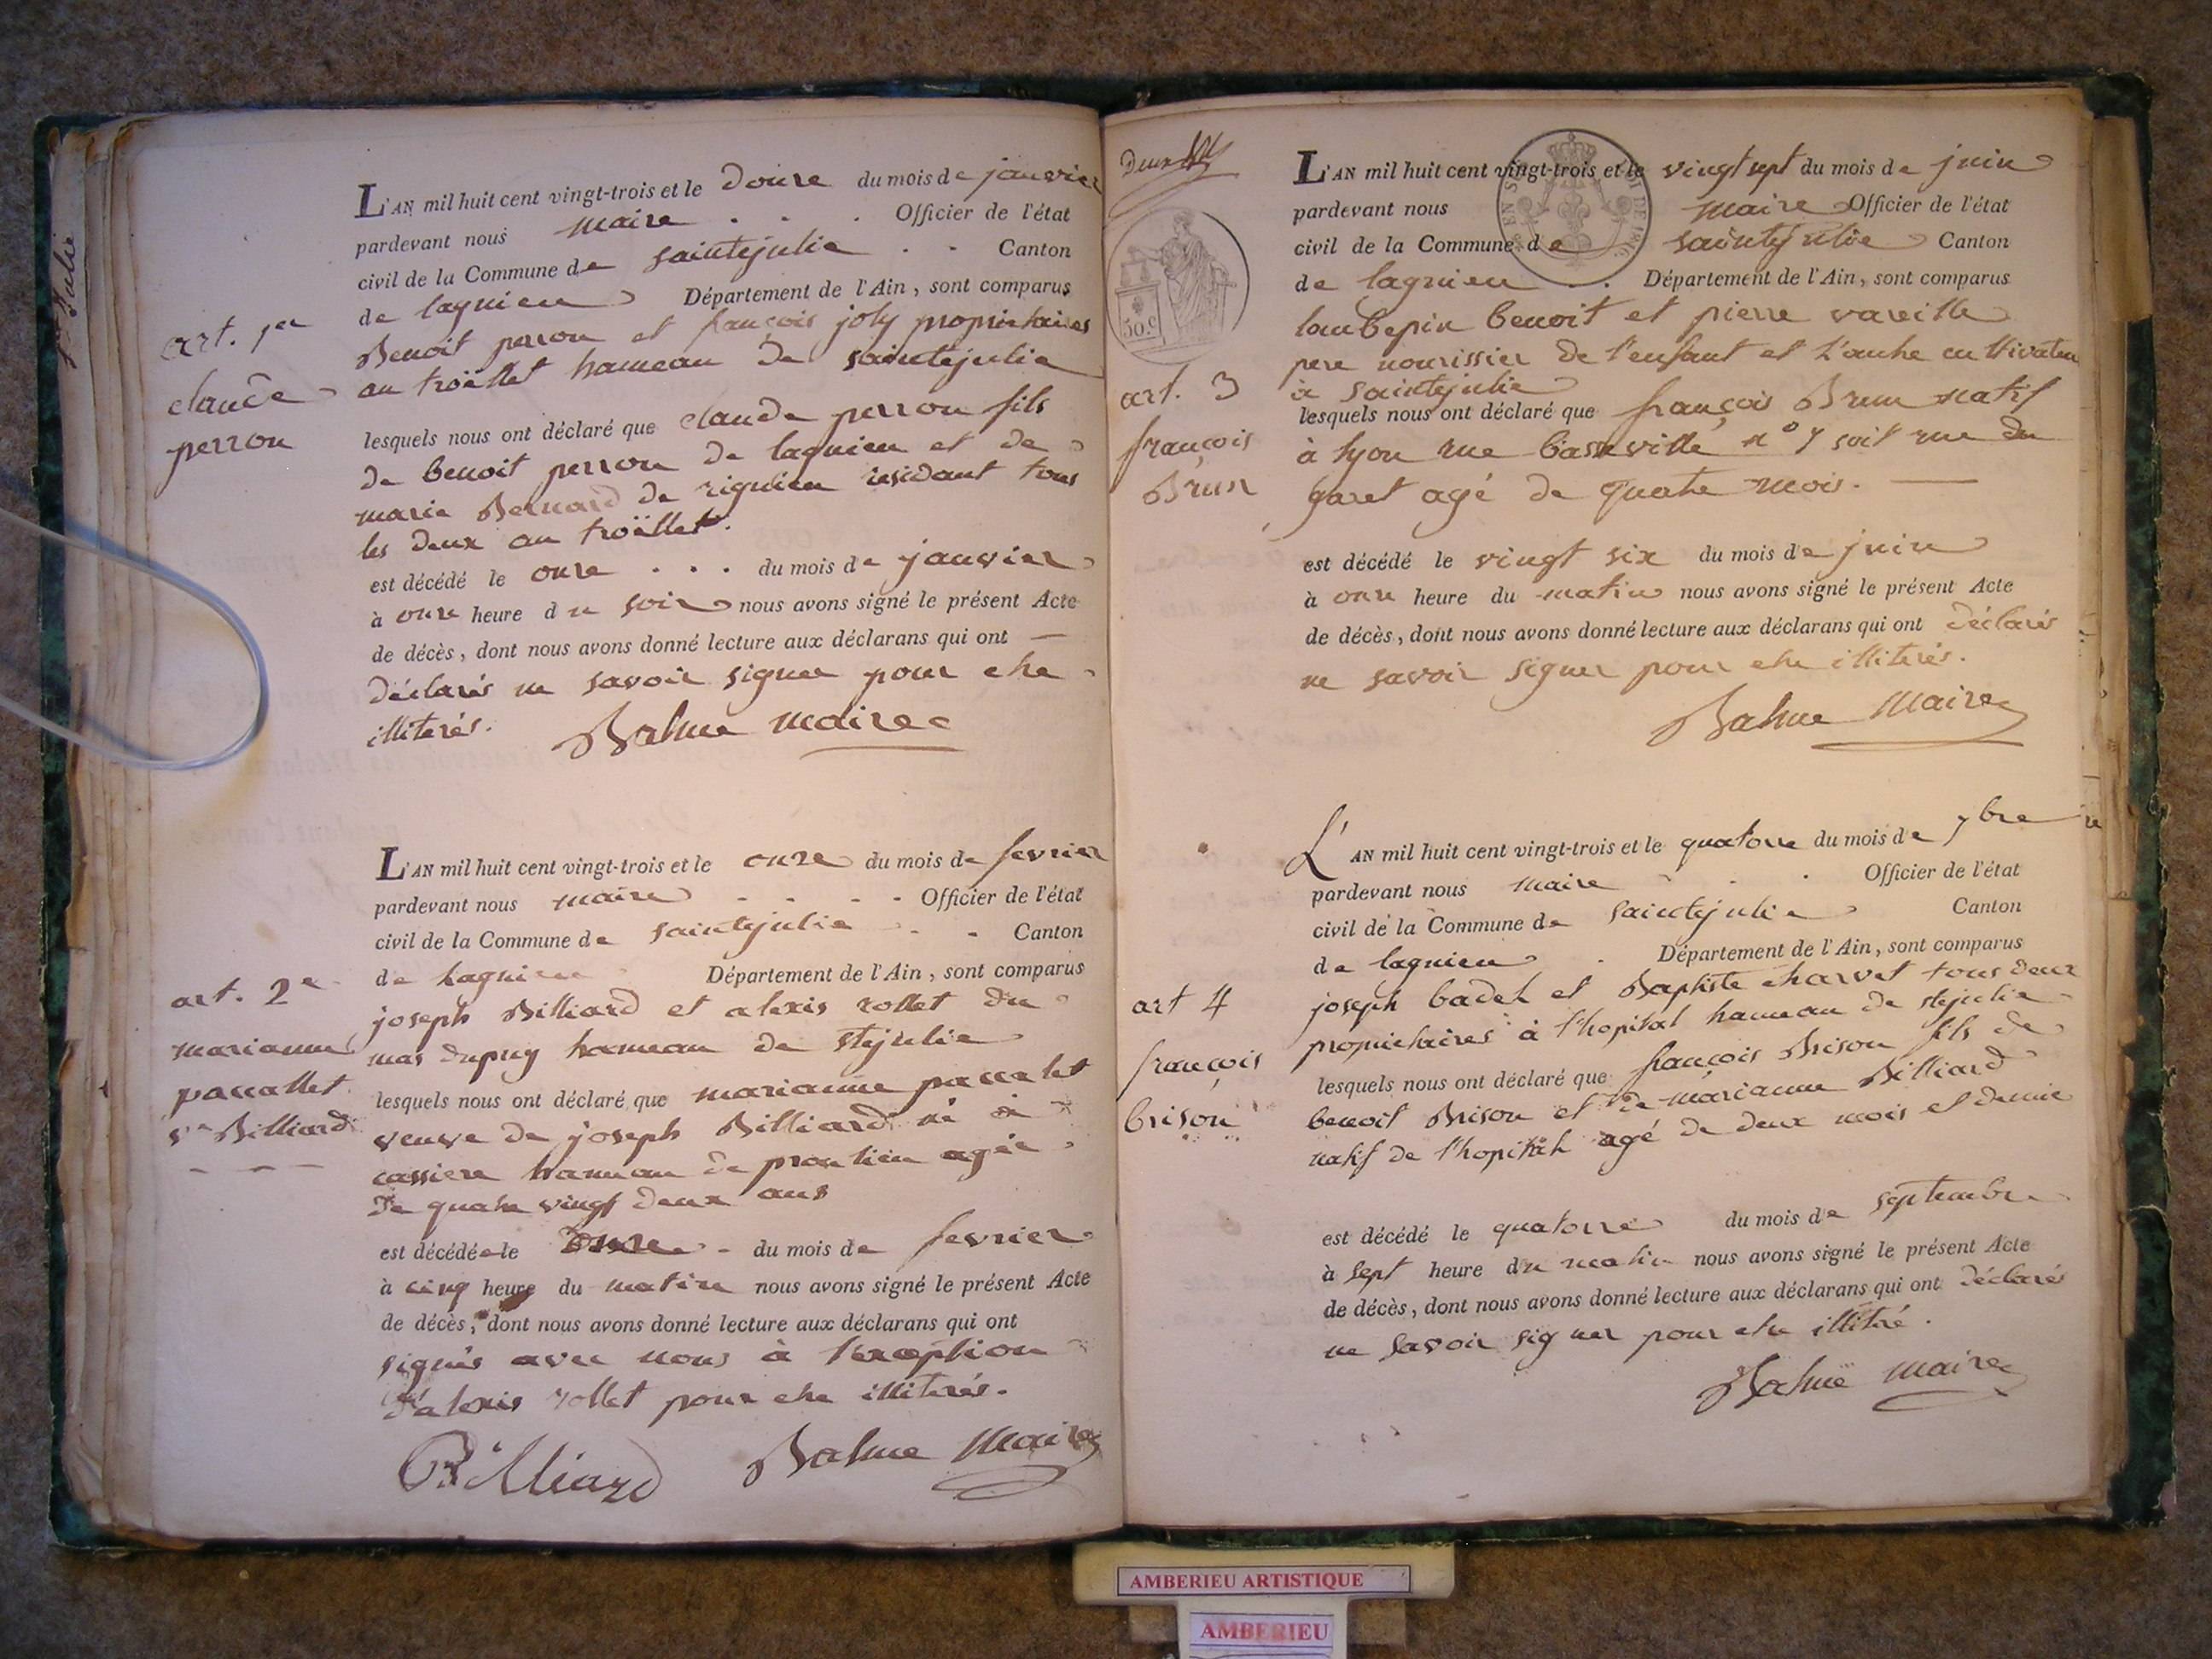 Ste Julie
L'AN mil huit cent vingt-trois et le douze du mois de janvier
pardevant nous maire . . . Officier de l'état
civil de la Commune de saintejulie . . Canton
de lagnieu Département de l'Ain, sont comparus
Benoit perron et françois joly proprietaires
au troëllet hameau de saintejulie
art. 1er
claude
perron
lesquels nous ont déclaré que claude perron fils
de benoit perron de lagnieu et de
marie Bernard de rignieu residant tous
les deux au troëllet.
est décédé le onze . . . du mois de janvier
à onze heure du soir nous avons signé le présent Acte
de décès, dont nous avons donné lecture aux déclarans qui ont —
déclarés ne savoir signer pour etre
illiterés. Balme maire
L'AN mil huit cent vingt-trois et le onze du mois de fevrier
pardevant nous maire . . . . Officier de l'état
civil de la Commune de saintejulie . . Canton
de lagnieu Département de l'Ain, sont comparus
art. 2e
marianne
passallet
ve Billiard
joseph Billiard et alexis rollet du
mas dupuy hameau de stejulie
lesquels nous ont déclaré que marianne
veuve de joseph Billiard né à
cassiere hameau de proulieu agée
de quatre vingt deux ans
est décédée le onze - du mois de fevrier
à cinq heure du matin nous avons signé le présent Acte
de décès, dont nous avons donné lecture aux déclarans qui ont
signés avec nous à l'exception
d'alexis rollet pour etre illiterés.
Billiard Balme Maire
deux
50.c
L'AN mil huit cent vingt-trois et le vingt sept du mois de juin
pardevant nous maire Officier de l'état
civil de la Commune de saintejulie Canton
de lagnieu . . Département de l'Ain, sont comparus
laubepin benoit et pierre vareille
pere nourissier de l'enfant et l'autre cultivateu
à saintejulie
art. 3
françois
Brun
lesquels nous ont déclaré que françois Brun natif
à lyon rue basseville n° 7 soit rue du
garet agé de quatre mois. —
est décédé le vingt six du mois de juin
à onze heure du matin nous avons signé le présent Acte
de décès, dont nous avons donné lecture aux déclarans qui ont déclarés
ne savoir signer pour etre illiterés.
Balme Maire
L'AN mil huit cent vingt-trois et le quatorze du mois de 7bre
pardevant nous maire . . Officier de l'état
civil de la Commune de saintejulie Canton
de lagnieu . Département de l'Ain, sont comparus
art 4
françois
brison
joseph badel et Baptiste charvet tous deux
proprietaires à l'hopital hameau de stejulie
lesquels nous ont déclaré que françois Brison fils de
benoit Brison et de marianne Billiard
natif de l'hopital agé de deux mois et demie
est décédé le quatorze du mois de septembre
à sept heure du matin nous avons signé le présent Acte
de décès, dont nous avons donné lecture aux déclarans qui ont déclarés
ne savoir signer pour etre illitéré.
Balme maire
AMBERIEU ARTISTIQUE
AMBERIEU